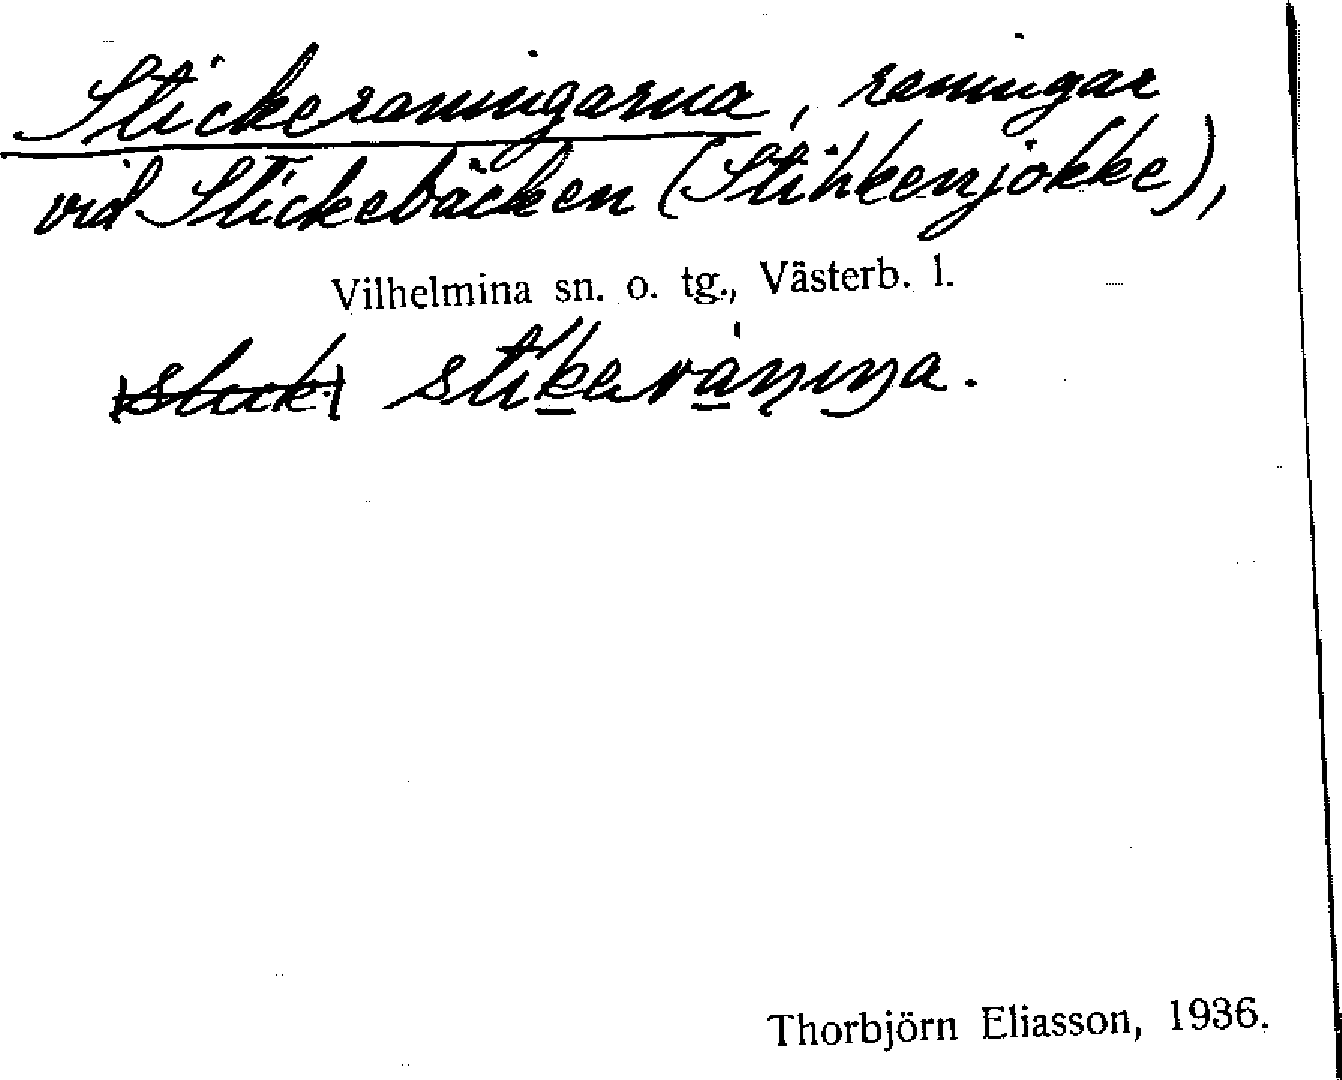 Stickeraningarna, raningar
vid Stickebäcken (Stihkenjokke),
Vilhelmina sn. o. tg., Västerb. l.
stikaráŋıŋa.
Thorbjörn Eliasson, 1936.